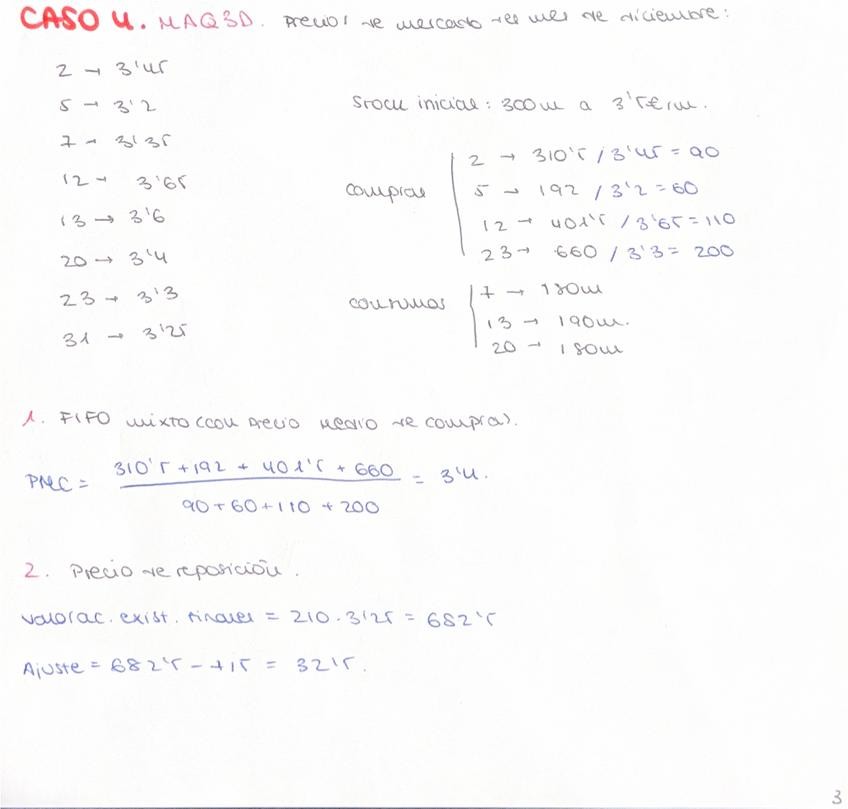 CASO 4. MAQ3D. Precios de mercado del mes de diciembre:
2 → 3'45
5 → 3'2
7 → 3'35
12 → 3'65
13 → 3'6
20 → 3'4
23 → 3'3
31 → 3'25
Stock inicial: 300m a 3'5€/m.
compras
2 → 310'5 / 3'45 = 90
5 → 192 / 3'2 = 60
12 → 401'5 / 3'65 = 110
23 → 660 / 3'3 = 200
consumos
7 → 180m
13 → 190m.
20 → 180m
1. FIFO mixto (con precio medio de compras).
PMC = 310'5 + 192 + 401'5 + 660 / 90 + 60 + 110 + 200 = 3'4.
2. Precio de reposición.
Valorac. exist. finales = 210 · 3'25 = 682'5
Ajuste = 682'5 - 715 = 32'5.
3